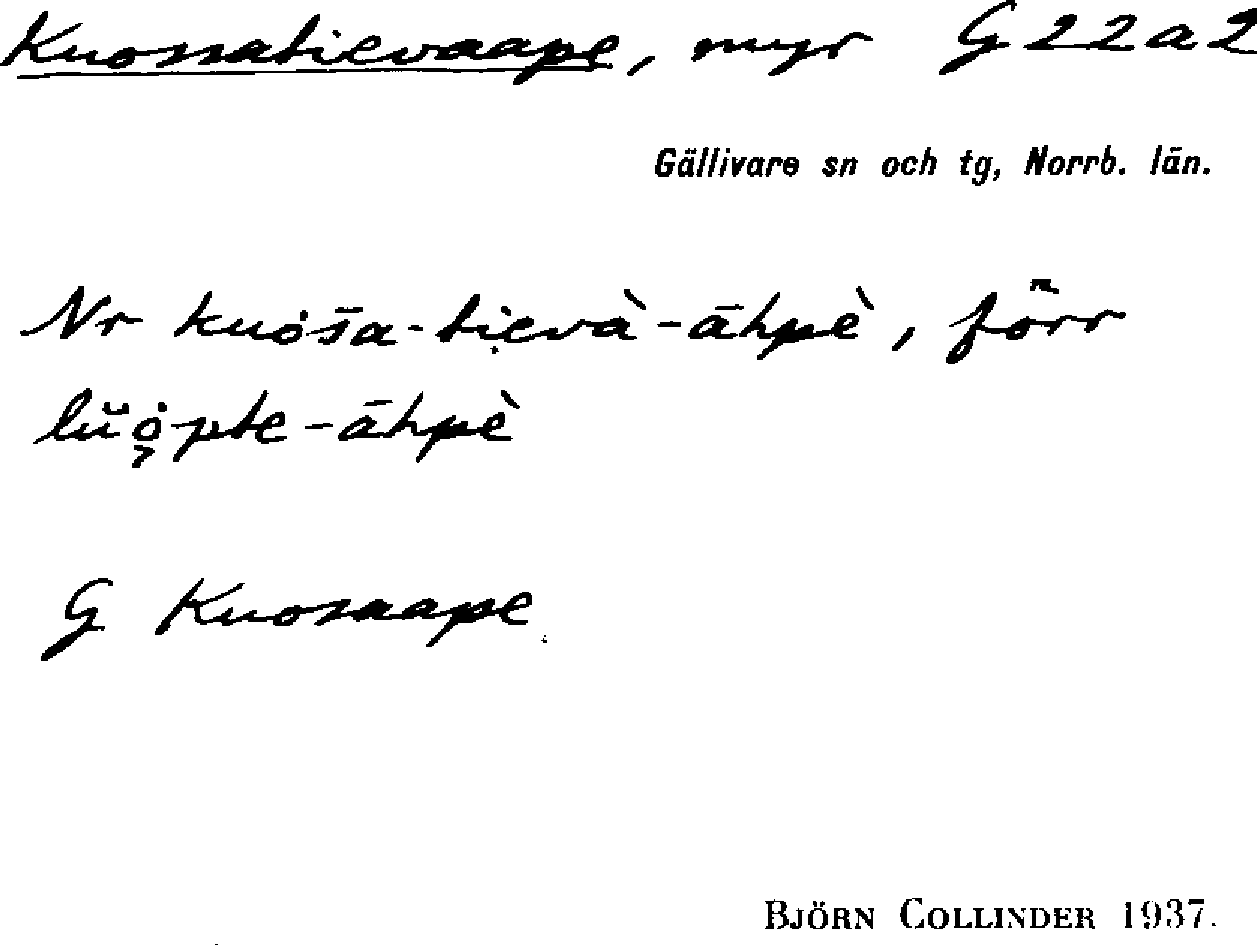 Kuossatievaape, myr G 22 a 2
Gällivare sn och tg, Norrb. län.
Nr kuȯs̄a-ti̤evà-āhpè, förr
lŭȯ̤pte-āhpè
G Kuosaape
BJÖRN COLLINDER 1937.